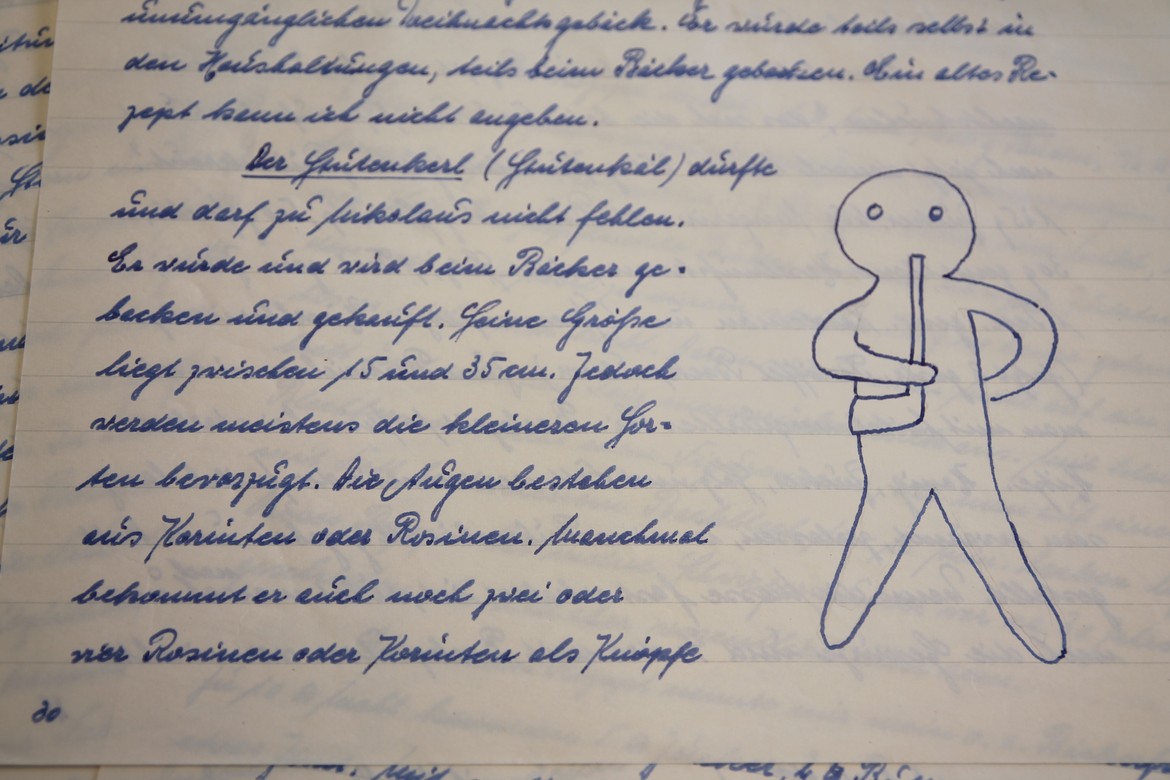 unumgänglichen Weihnachtsgebäck. Er wurde teils selbst in
den Haushaltungen, teils beim Bäcker gebacken. Ein altes Re-
zept kann ich nicht angeben.
Der Stutenkerl (Stutenkäl) dürfte
und darf zu Nikolaus nicht fehlen.
Er wurde und wird beim Bäcker ge-
backen und gekauft. Seine Größe
liegt zwischen 15 und 35 cm. Jedoch
werden meistens die kleineren Sor-
ten bevorzugt. Die Augen bestehen
aus Korinten oder Rosinen. Manchmal
bekommt er auch noch zwei oder
vier Rosinen oder Korinten als Knöpfe
30